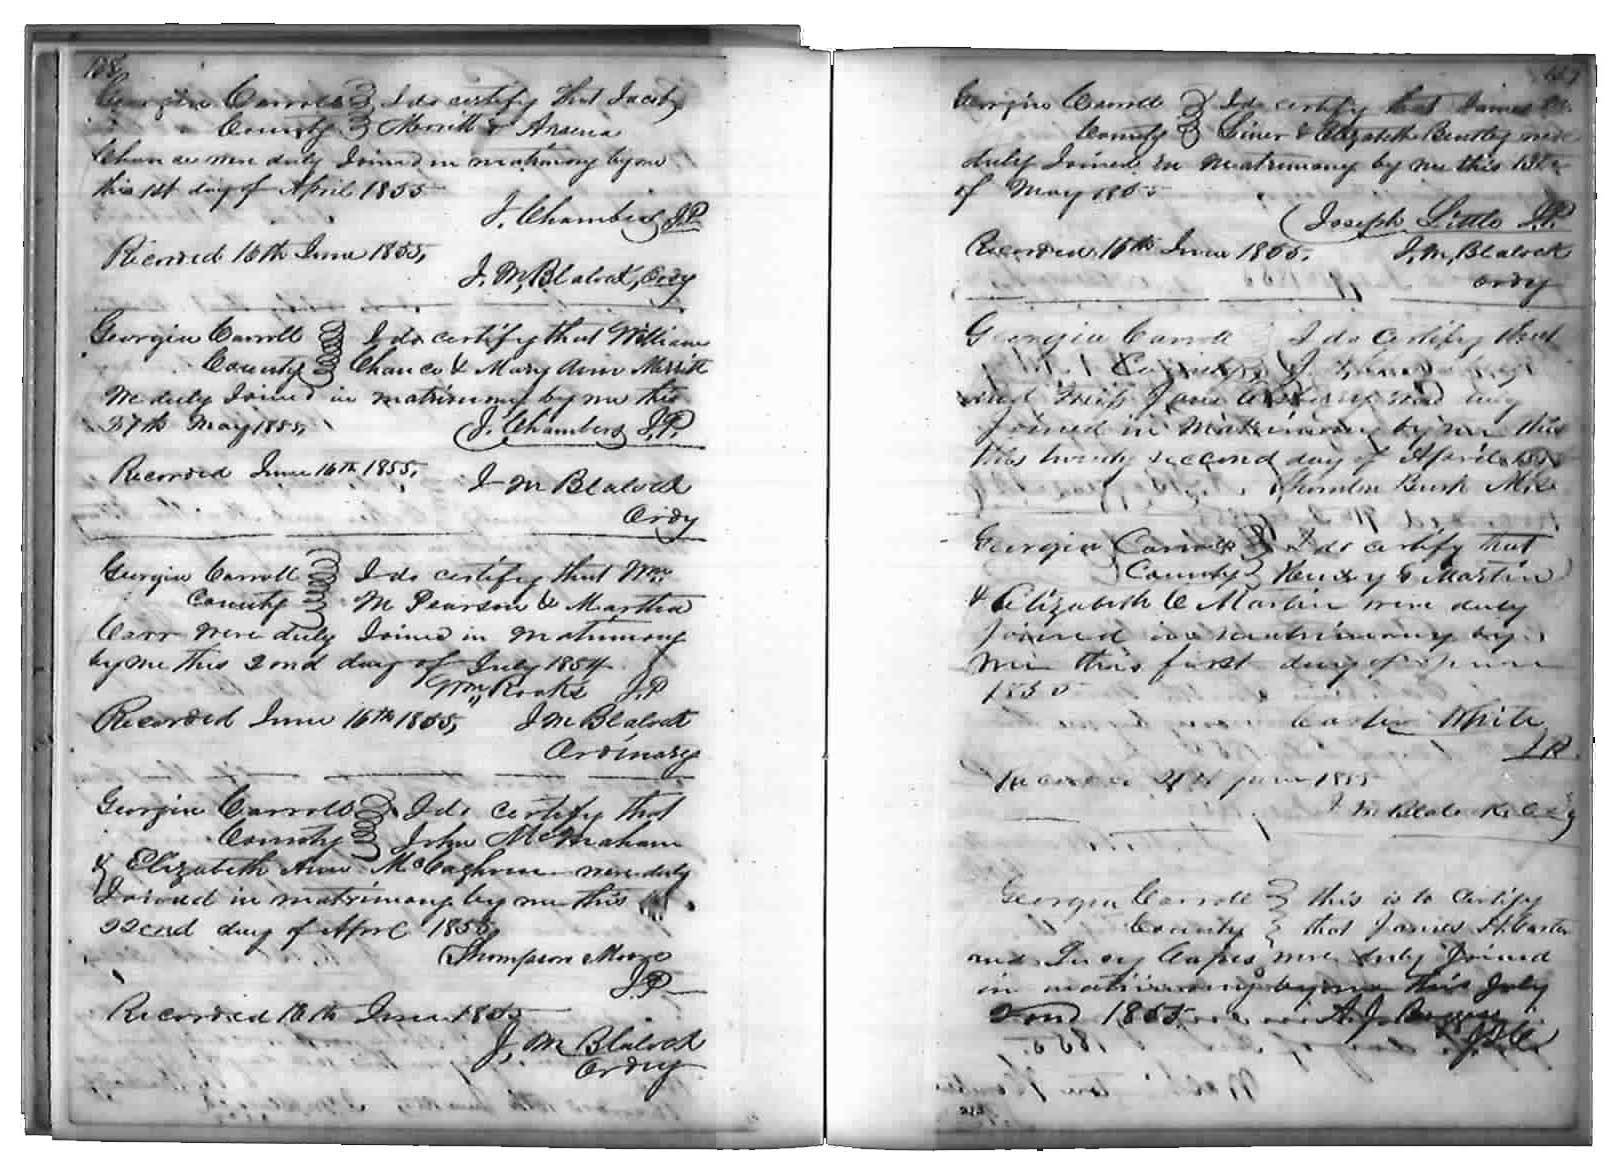 Georgia Carroll I do certify that Jacob
County Merritt & 
Chance were duly Joined in matrimony by me
this 1st day of April 1855
J. Chambers J.P.
Recorded 16th June 1855,
J. M. Blalock, Ordy
Georgia Carroll I do certify that William
County Chance & Mary Ann Merritt
We duly Joined in matrimony by me this
27th May 1855,
J. Chambers J.P.
Recorded June 16th 1855,
J M Blalock
Ordy
Georgia Carroll I do certify that Wm
County M Pearson & Martha
Carr were duly Joined in matrimony
by me this 2ond day of July 1854
Wm Rooks J.P
Recorded June 16th 1855, J M Blalock
Ordinary
Georgia Carroll I do certify that
County John
& Elizabeth Ann were duly
Joined in matrimony by me this
22cnd day of Aprl 1855,
Thompson Moore
J.P
Recorded 16th June 1855
J, M Blalock
Ordry
127
Georgia Carroll I do certify that James
County & Elizabeth Bentley were
duly Joined in Matrimony by me this 13th
of May 1855
Joseph Little J.P.
Recorded, 16th June 1855. J, M, Blalock
ordy
Georgia Carroll I do Certify that
County J.
and Miss Jane
Joined in Matrimony by me this
this twenty second day of April 1855
Bush
Georgia Carroll I do certify that
County Henry Martin
& Elizabeth C Martin were duly
joined in matrimony by
me this first day of June
1855
Carter White
J.P.
21st June 1855
J. M Blalock
Georgia Carroll this is to Certify
County that James H. Carter
and Lucy were duly Joined
in matrimony by me this July
2ond 1855 A. J.